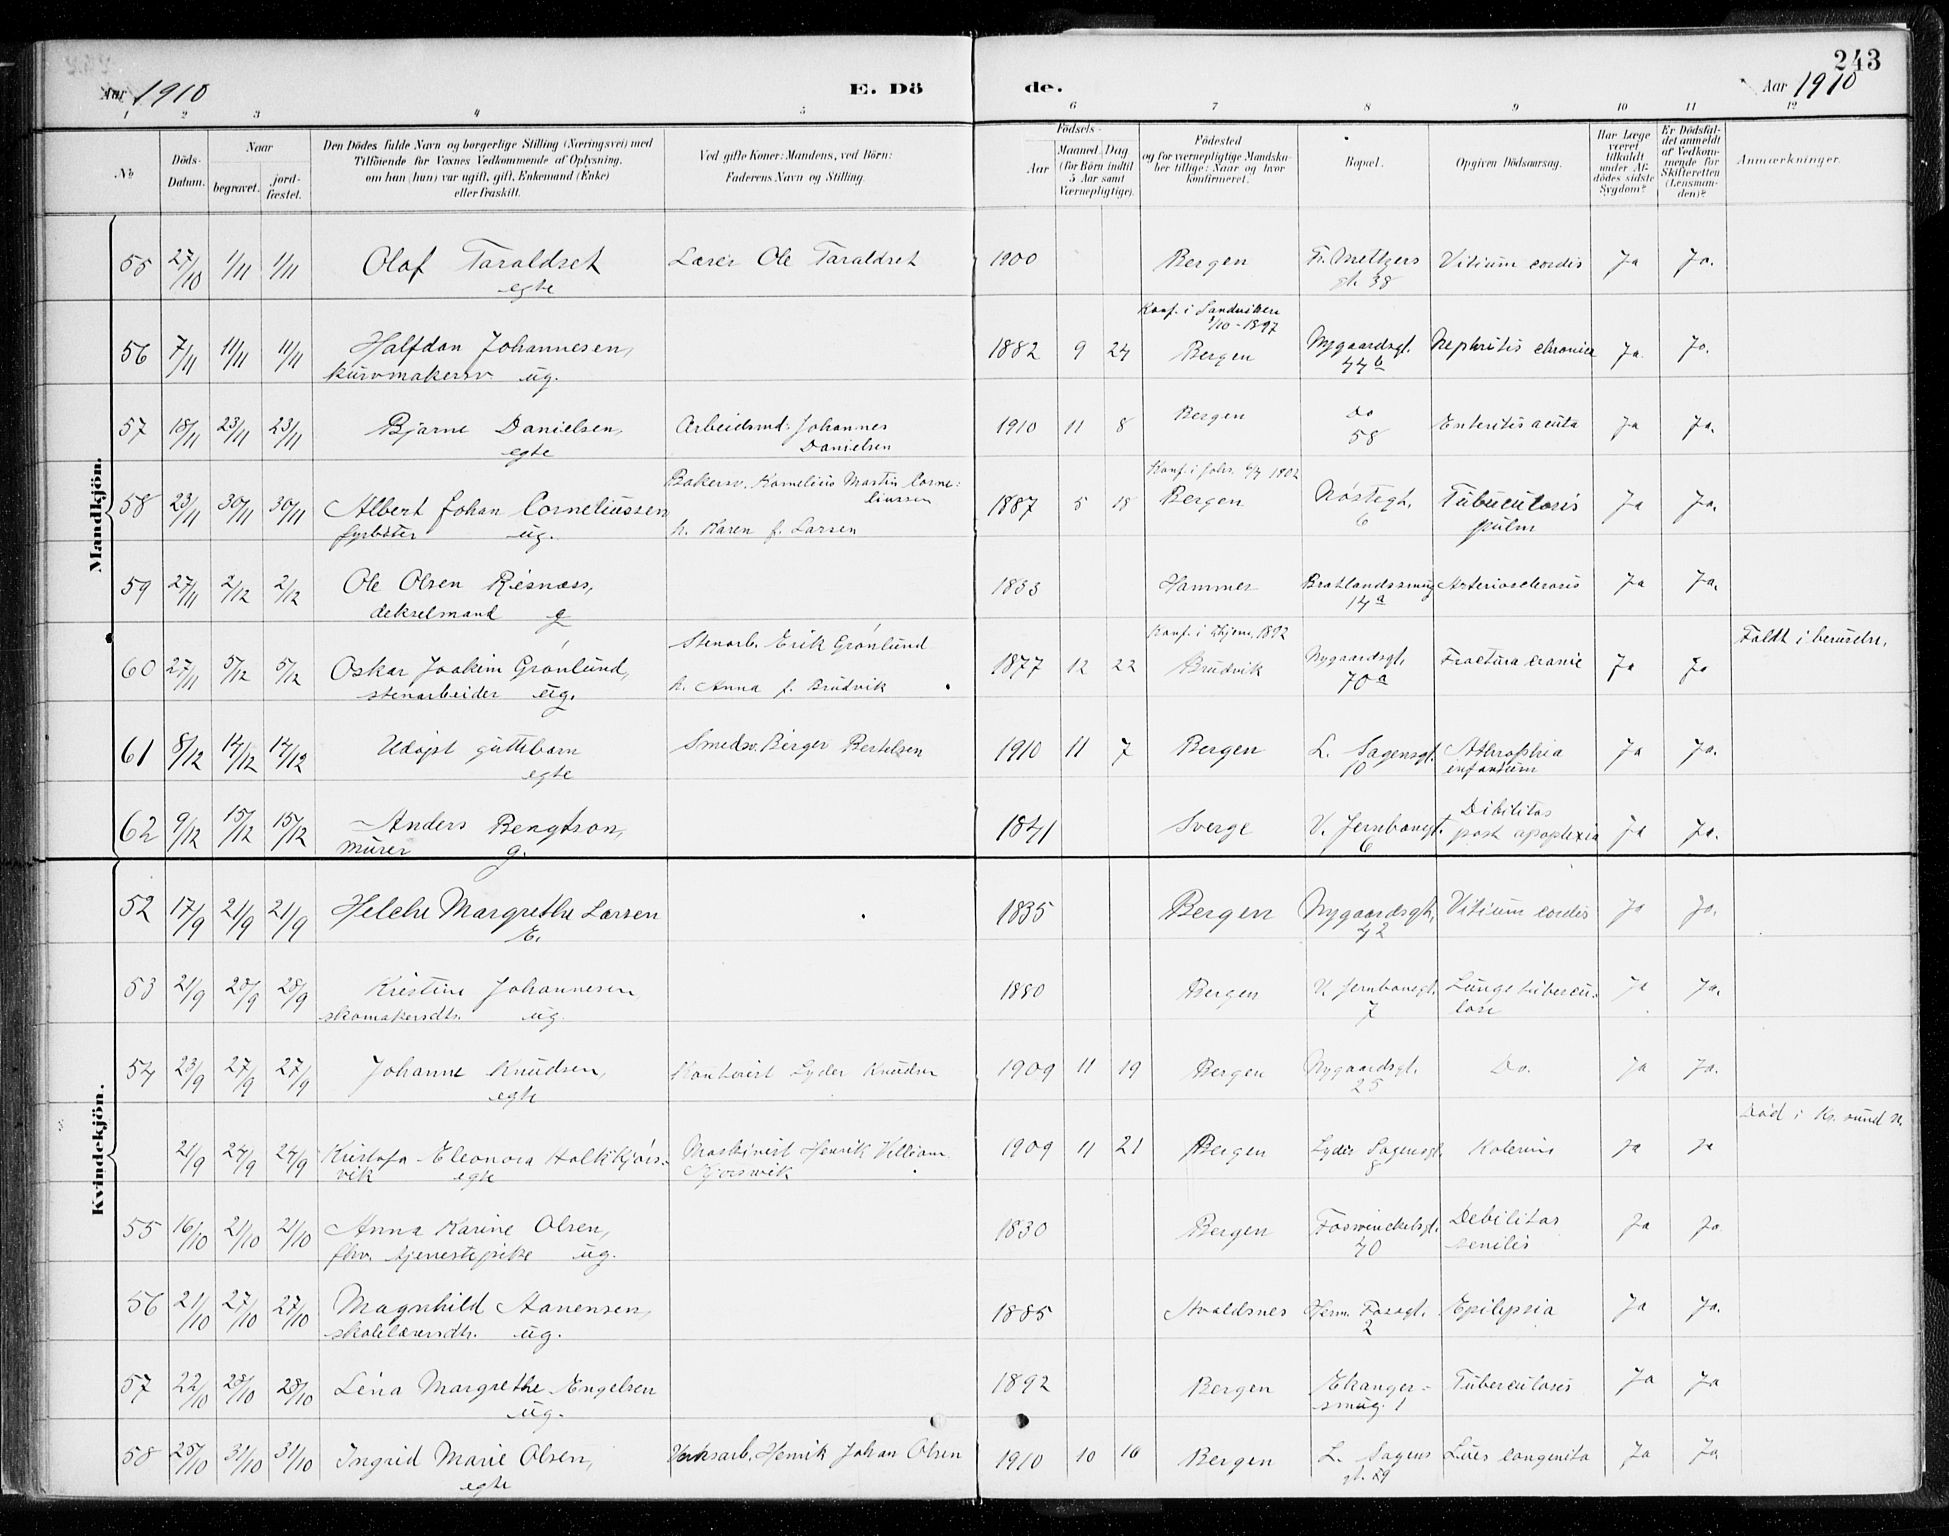 243
Aar 1910 E. Dö de. Aar 1910
1 2 3 4 5 6 7 8 9 10 11 12
No.
Döds-Datum.
Naar
begravet.
jord-fæstet.
Den Dödes fulde Navn og borgerlige Stilling (Næringsvei) med
Tilföiende for Voxnes Vedkommende af Oplysning,
om han (hun) var ugift, gift, Enkemand (Enke)
eller fraskilt.
Ved gifte Koner: Mandens, ved Börn:
Faderens Navn og Stilling.
Födsels-
Aar
Maaned. Dag
(for Börn indtil
5 Aar samt
Værnepligtige).
Födested
og for værnepligtige Mandska-
ber tillige: Naar og hvor
konfirmeret.
Bopæl.
Opgiven Dödsaarsag.
Har Læge
været
tilkaldt
under Af-
dödes sidste
Sygdom?
Er Dödsfal-
det anmeldt
af Vedkom-
mende for
Skifteretten
(Lensman-
den)?
Anmærkninger.
Mandkjön.
55 27/10 1/11 1/11 Olaf Taraldset Lærer Ole Taraldset 1900 Bergen Fr. Meltzers Vitium cordis Ja Ja.
egte gt. 38
Konf. i Sandviken
1/10-1897
56 7/11 11/11 11/11 Halfdan Johannesen, 1882 9 24 Bergen Nygaardsgt. Nephritis chronica Ja. Ja.
kurvmakersv ug. 44 b
57 18/11 23/11 23/11 Bjarne Danielsen, Arbeidsmd. Johannes 1910 11 8 Bergen Do Enteritis acuta Ja Ja.
egte Danielsen 58
Bakersv. Kornelius Martin Corne- Konf. i Johs. 1902
liussen
58 23/11 30/11 30/11 Albert Johan Corneliussen 1887 5 18 Bergen Nöstegt. Tubuculosis Ja Ja.
fyrböter ug. h. Karen f. Larsen 6 pulm
59 27/11 2/12 2/12 Ole Olsen Risnæss, 1833 Hammer Bratlandssmug Arteriosclerosis Ja Ja.
dekselmand g 14 a
Stenarb. Erik Grönlund Faldt i beruselse.
60 27/11 5/12 5/12 Oskar Joakim Grönlund, 1877 12 22 Brudvik Nygaardsgt. Fractura cranie Ja Ja
stenarbeider ug. h. Anna f. Brudvik 70 a
61 8/12 14/12 14/12 Udöpt guttebarn Smedsv. Birger Bertelsen 1910 11 7 Bergen L. Sagensgt. Athrophia Ja Ja.
egte 10 infantum
62 9/12 15/12 15/12 Anders Bengtson, 1841 Sverge V. Jernbanegt. Dibilitas Ja Ja.
murer g. 6 post apoplexia
Kvindekjön.
52 17/9 21/9 21/9 Helche Margrethe Larsen 1835 Bergen Nygaardsgt. Vitium cordis Ja Ja.
E. 42
53 21/9 28/9 28/9 Kristine Johannesen, 1880 Bergen V. Jernbanegt. Lungetubercu- Ja Ja.
skomakersdtr. ug. 7 lose
54 23/9 27/9 27/9 Johanne Knudsen, Kontorist Lyder Knudsen 1909 11 19 Bergen Nygaardsgt. Do. Ja Ja.
egte 25
Död i Kr. sund N.
21/9 24/9 24/9 Kristofa Eleonora Holtkjørs- Maskinist Henrik Villiam 1909 11 21 Bergen Lyder Sagensgt. Kolerine Ja Ja
vik egte 8
55 16/10 21/10 21/10 Anna Karine Olsen, 1830 Bergen Fosswinckelsgt. Debilitas Ja Ja
fhv. tjenestepike ug. 40 senilis
56 21/10 27/10 27/10 Magnhild Aanensen, 1885 Avaldsnes Herm. Fossgt. Epilepsia Ja Ja.
skolelærerdtr. ug. 2
57 22/10 28/10 28/10 Lena Margrethe Engelsen 1892 Bergen Ekanger- Tuberculosis Ja Ja
ug. smug. 1
58 25/10 31/10 31/10 Ingrid Marie Olsen, Verksarb. Henrik Johan Olsen 1910 10 16 Bergen L. Sagens Lues congenita Ja Ja
egte gt. 29